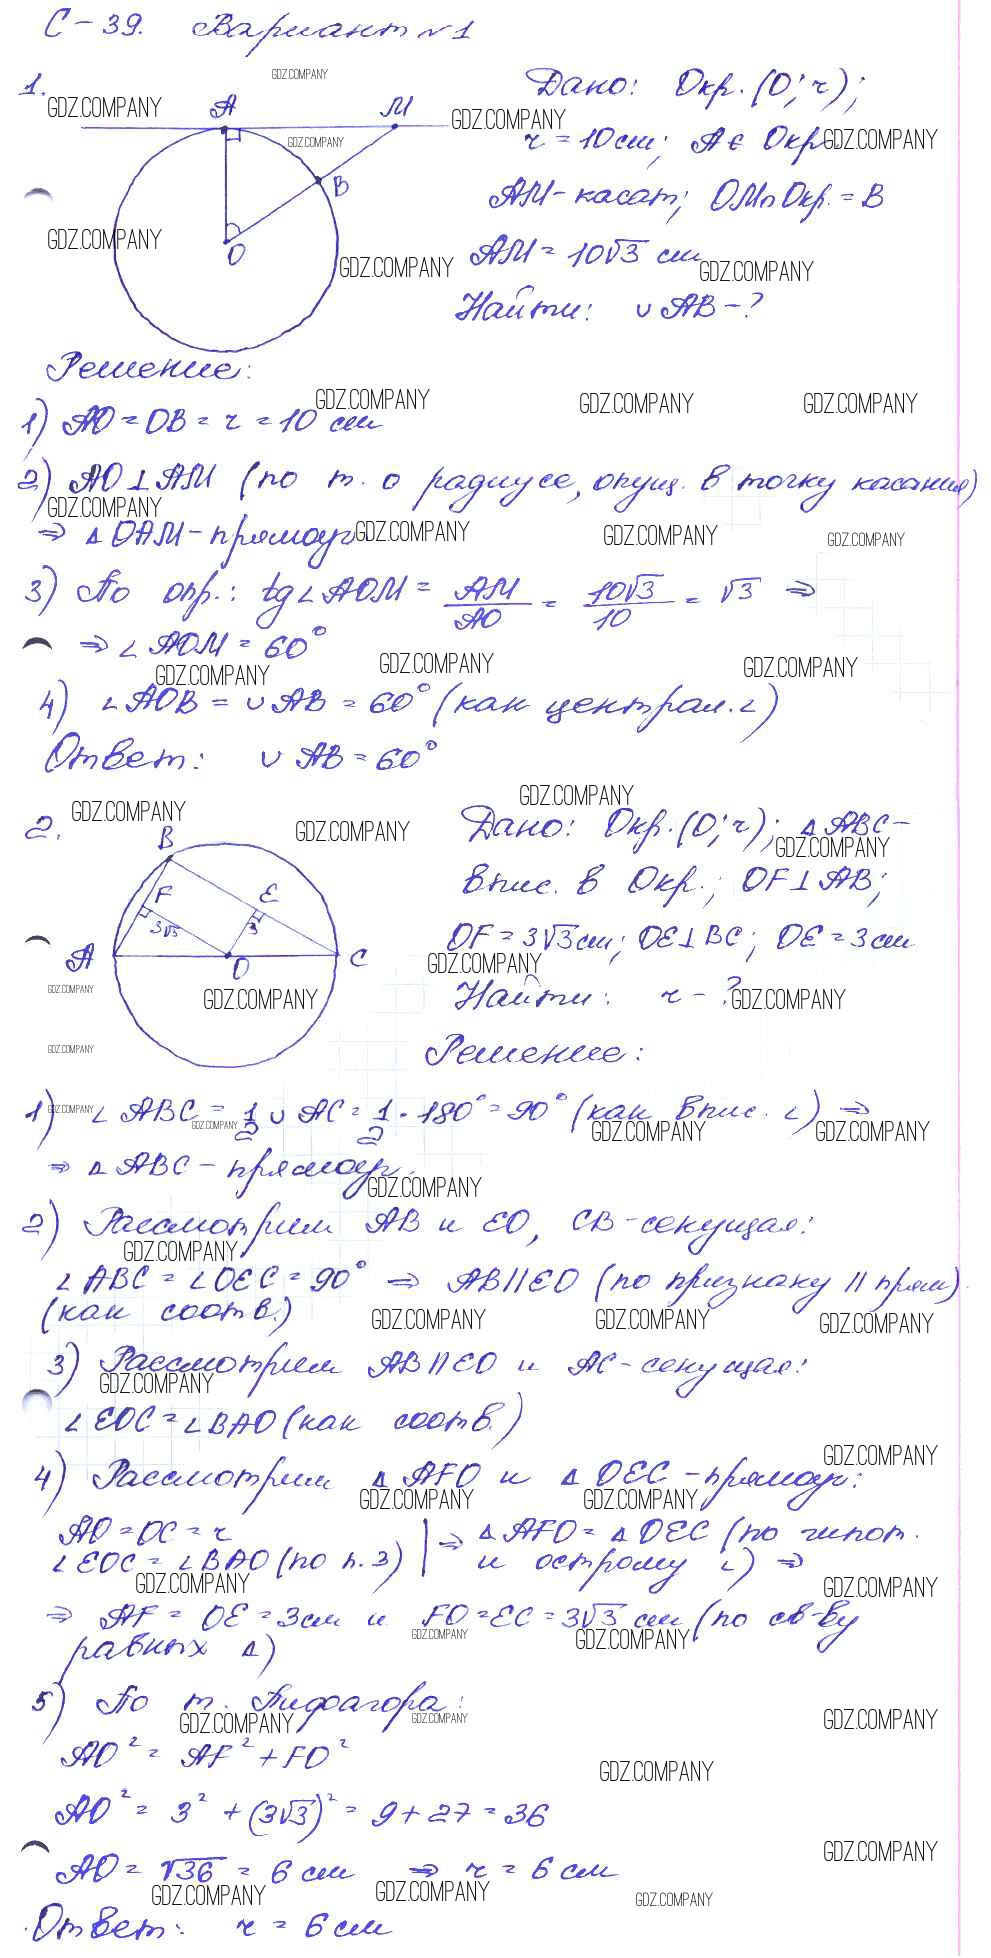 С-39. Вариант №1
1.
Дано: Окр.(О; r);
r = 10см; A ∈ Окр.
AM - касат; OM∩Окр. = B
AM = 10√3 см
Найти: ∪AB - ?
A
M
B
O
Решение:
1) AO = OB = r = 10 см
2) AO ⊥ AM (по т. о радиусе, опущ. в точку касания)
⇒ △OAM - прямоуг.
3) По опр.: tg∠AOM = AM/AO = 10√3/10 = √3 ⇒
⇒ ∠AOM = 60°
4) ∠AOB = ∪AB = 60° (как централ. ∠)
Ответ: ∪AB = 60°
2.
Дано: Окр.(О; r); △ABC -
впис. в Окр.; OF ⊥ AB;
OF = 3√3см; OE ⊥ BC; OE = 3см
Найти: r - ?
B
F
E
3√3
3
A
O
C
Решение:
1) ∠ABC = 1/2 ∪AC = 1/2 · 180° = 90° (как впис. ∠) ⇒
⇒ △ABC - прямоуг.
2) Рассмотрим AB и EO, CB - секущая:
∠ABC = ∠OEC = 90° ⇒ AB || EO (по признаку || прям).
(как соотв.)
3) Рассмотрим AB || EO и AC - секущая:
∠EOC = ∠BAO (как соотв.)
4) Рассмотрим △AFO и △OEC - прямоуг:
AO = OC = r
∠EOC = ∠BAO (по п. 3) | ⇒ △AFO = △OEC (по гипот.
и острому ∠) ⇒
⇒ AF = OE = 3см и FO = EC = 3√3 см (по св-ву
равных △)
5) По т. Пифагора:
AO² = AF² + FO²
AO² = 3² + (3√3)² = 9 + 27 = 36
AO = √36 = 6 см ⇒ r = 6 см
Ответ: r = 6 см
GDZ.COMPANY